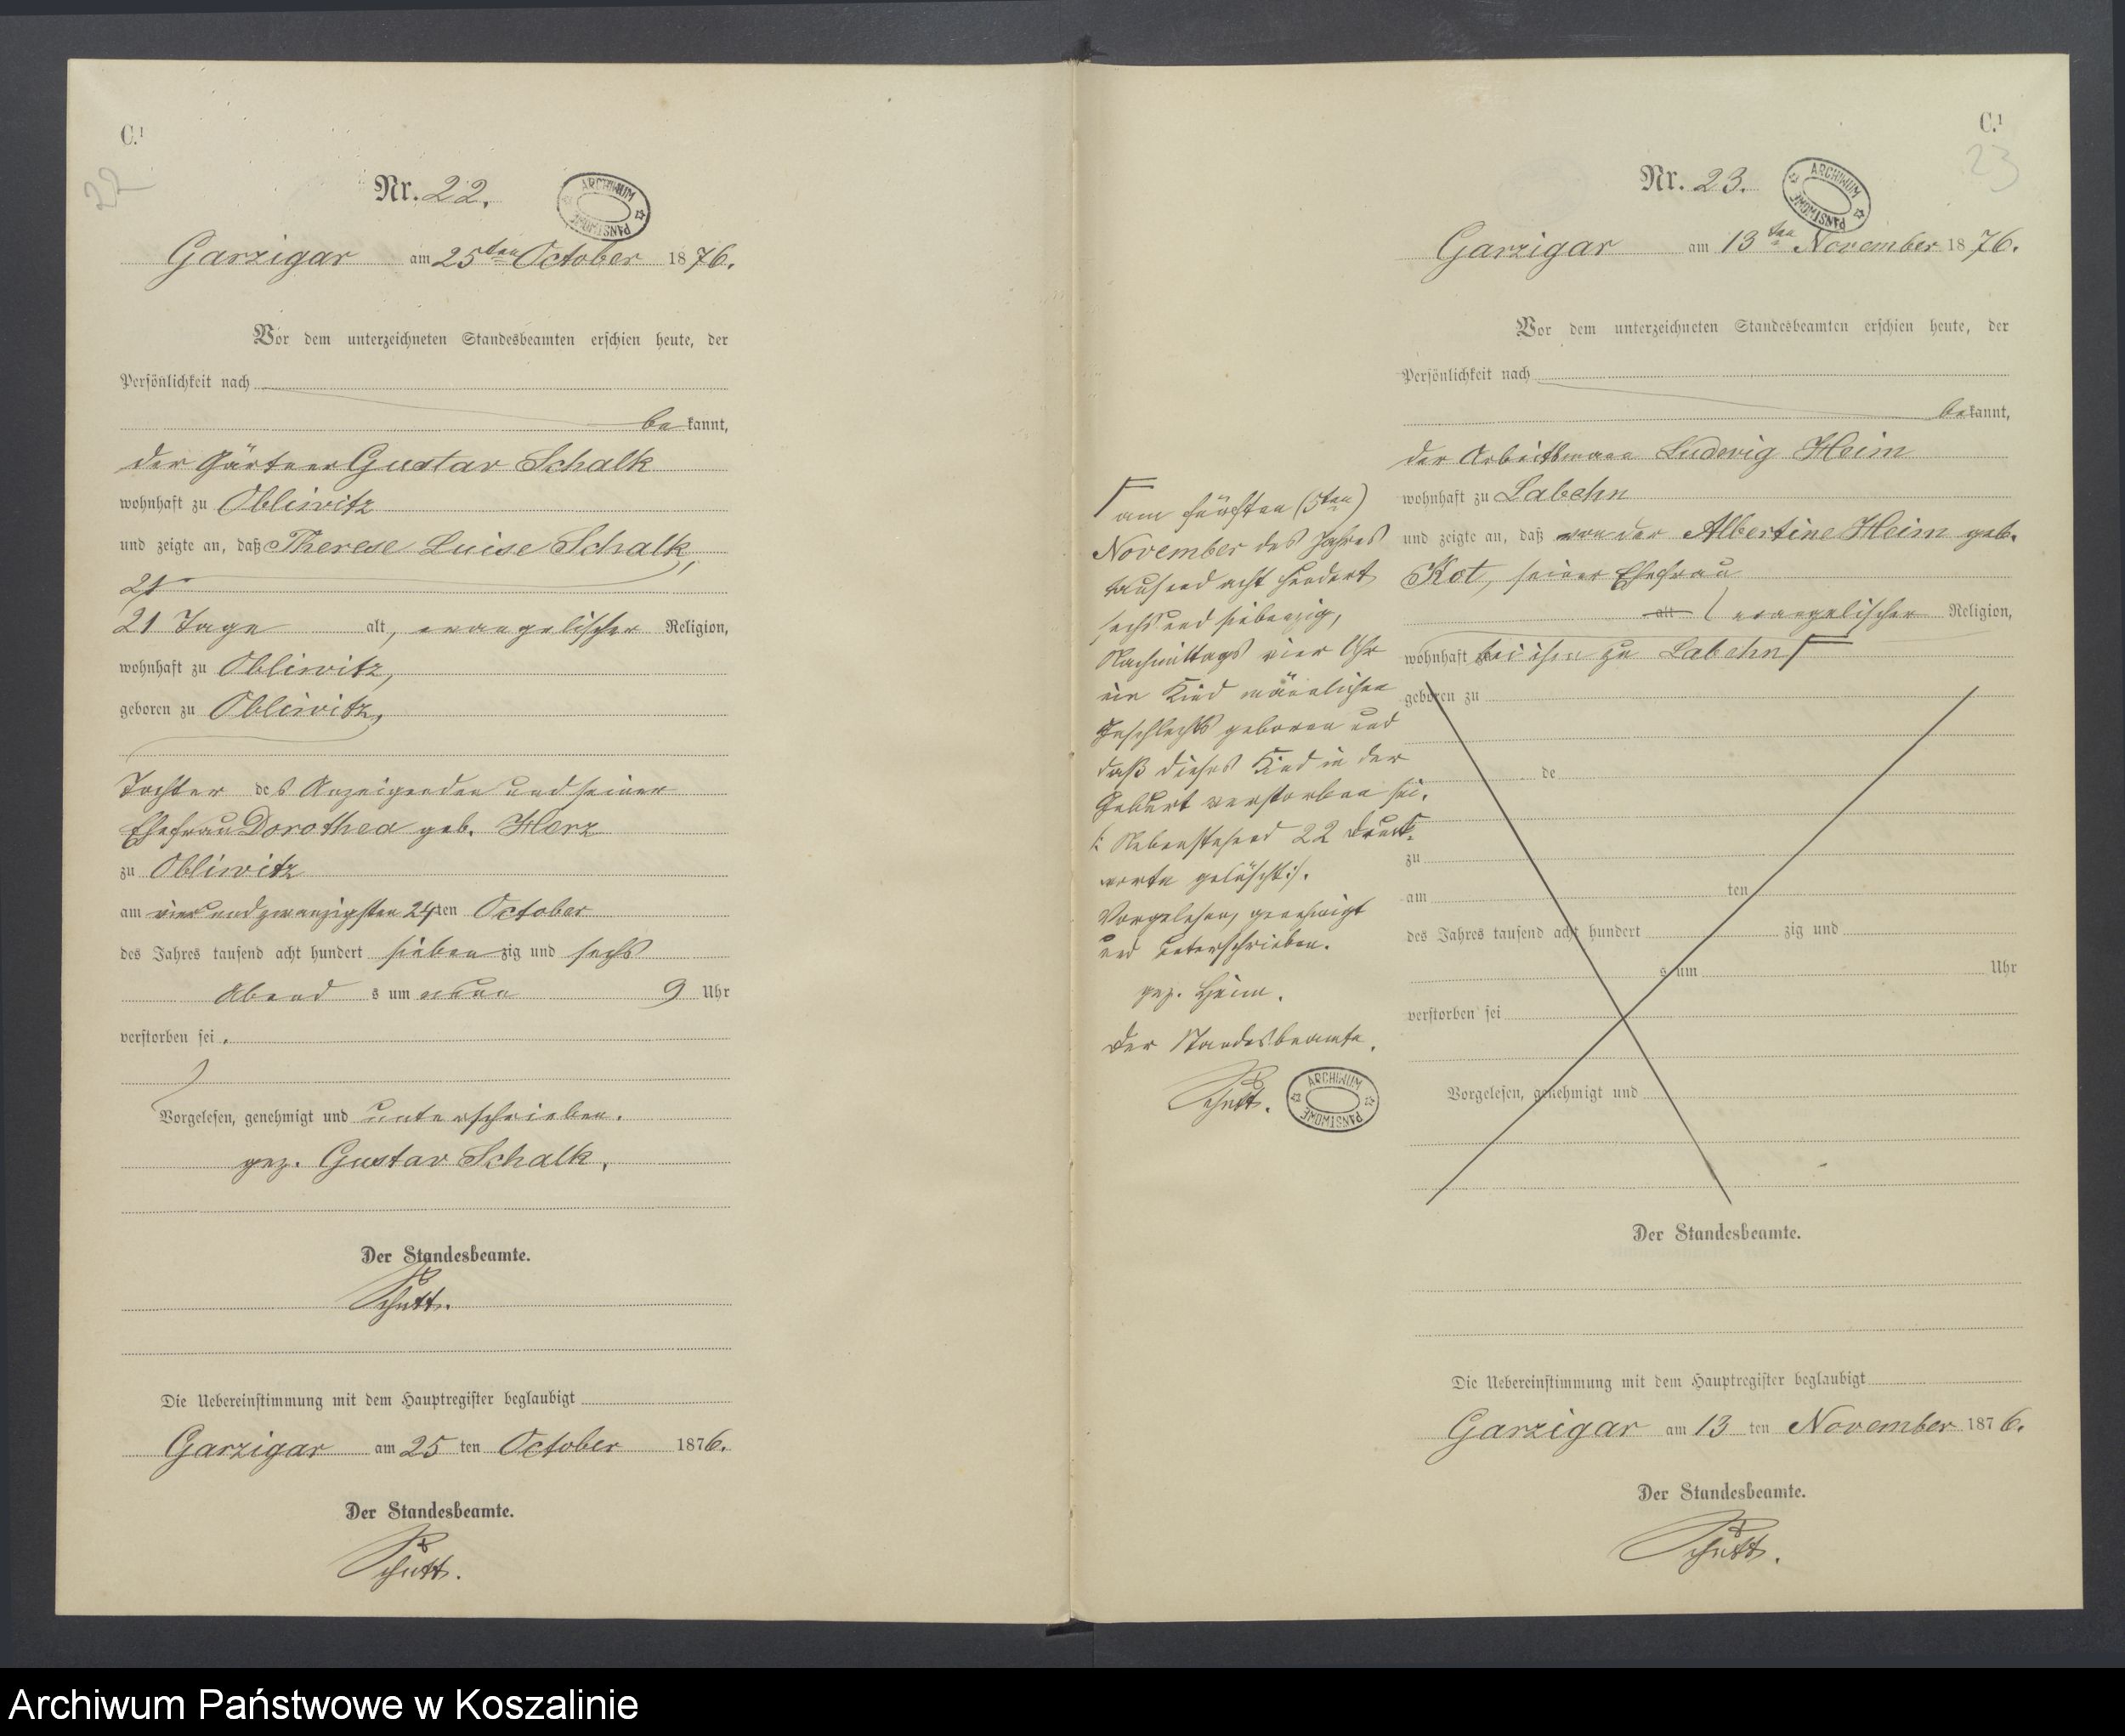 C.¹
22
Nr. 22.
ARCHIWUM PAŃSTWOWE
Garzigar am 25ten October 1876.
Vor dem unterzeichneten Standesbeamten erschien heute, der
Persönlichkeit nach
be kannt,
der Gärtner Gustav Schalk
wohnhaft zu Obliwitz
und zeigte an, daß Therese Luise Schalk,
21
21 Tage alt, evangelischer Religion,
wohnhaft zu Obliwitz,
geboren zu Obliwitz,
Tochter des Anzeigenden und seiner
Ehefrau Dorothea geb. Herz
zu Obliwitz
am vier und zwanzigsten 24ten October
des Jahres tausend acht hundert siebenzig und sechs
Abend s um neun 9 Uhr
verstorben sei.
Vorgelesen, genehmigt und unterschrieben.
gez. Gustav Schalk.
Der Standesbeamte.
Schütt.
Die Uebereinstimmung mit dem Hauptregister beglaubigt
Garzigar am 25 ten October 1876.
Der Standesbeamte.
Schütt.
C.¹
23
Nr. 23.
ARCHIWUM PAŃSTWOWE
Garzigar am 13ten November 1876.
Vor dem unterzeichneten Standesbeamten erschien heute, der
Persönlichkeit nach
bekannt,
der Arbeitsmann Ludwig Heim
wohnhaft zu Labehn
und zeigte an, daß von der Albertine Heim geb.
Kot, seiner Ehefrau
alt evangelischer Religion,
wohnhaft bei ihm zu Labehn
geboren zu
de
zu
am ten
des Jahres tausend acht hundert zig und
s um Uhr
verstorben sei
Vorgelesen, genehmigt und
am fünften (5ten)
November des Jahres
tausend acht hundert
sechs und siebenzig,
Nachmittags vier Uhr
ein Kind männlichen
Geschlechts geboren und
daß dieses Kind in der
Geburt verstorben sei.
/: Nebenstehend 22 Druck-
worte gelöscht :/.
Vorgelesen, genehmigt
und unterschrieben.
gez. Heim.
Der Standesbeamte.
Schütt.
ARCHIWUM PAŃSTWOWE
Der Standesbeamte.
Die Uebereinstimmung mit dem Hauptregister beglaubigt
Garzigar am 13 ten November 1876.
Der Standesbeamte.
Schütt.
Archiwum Państwowe w Koszalinie